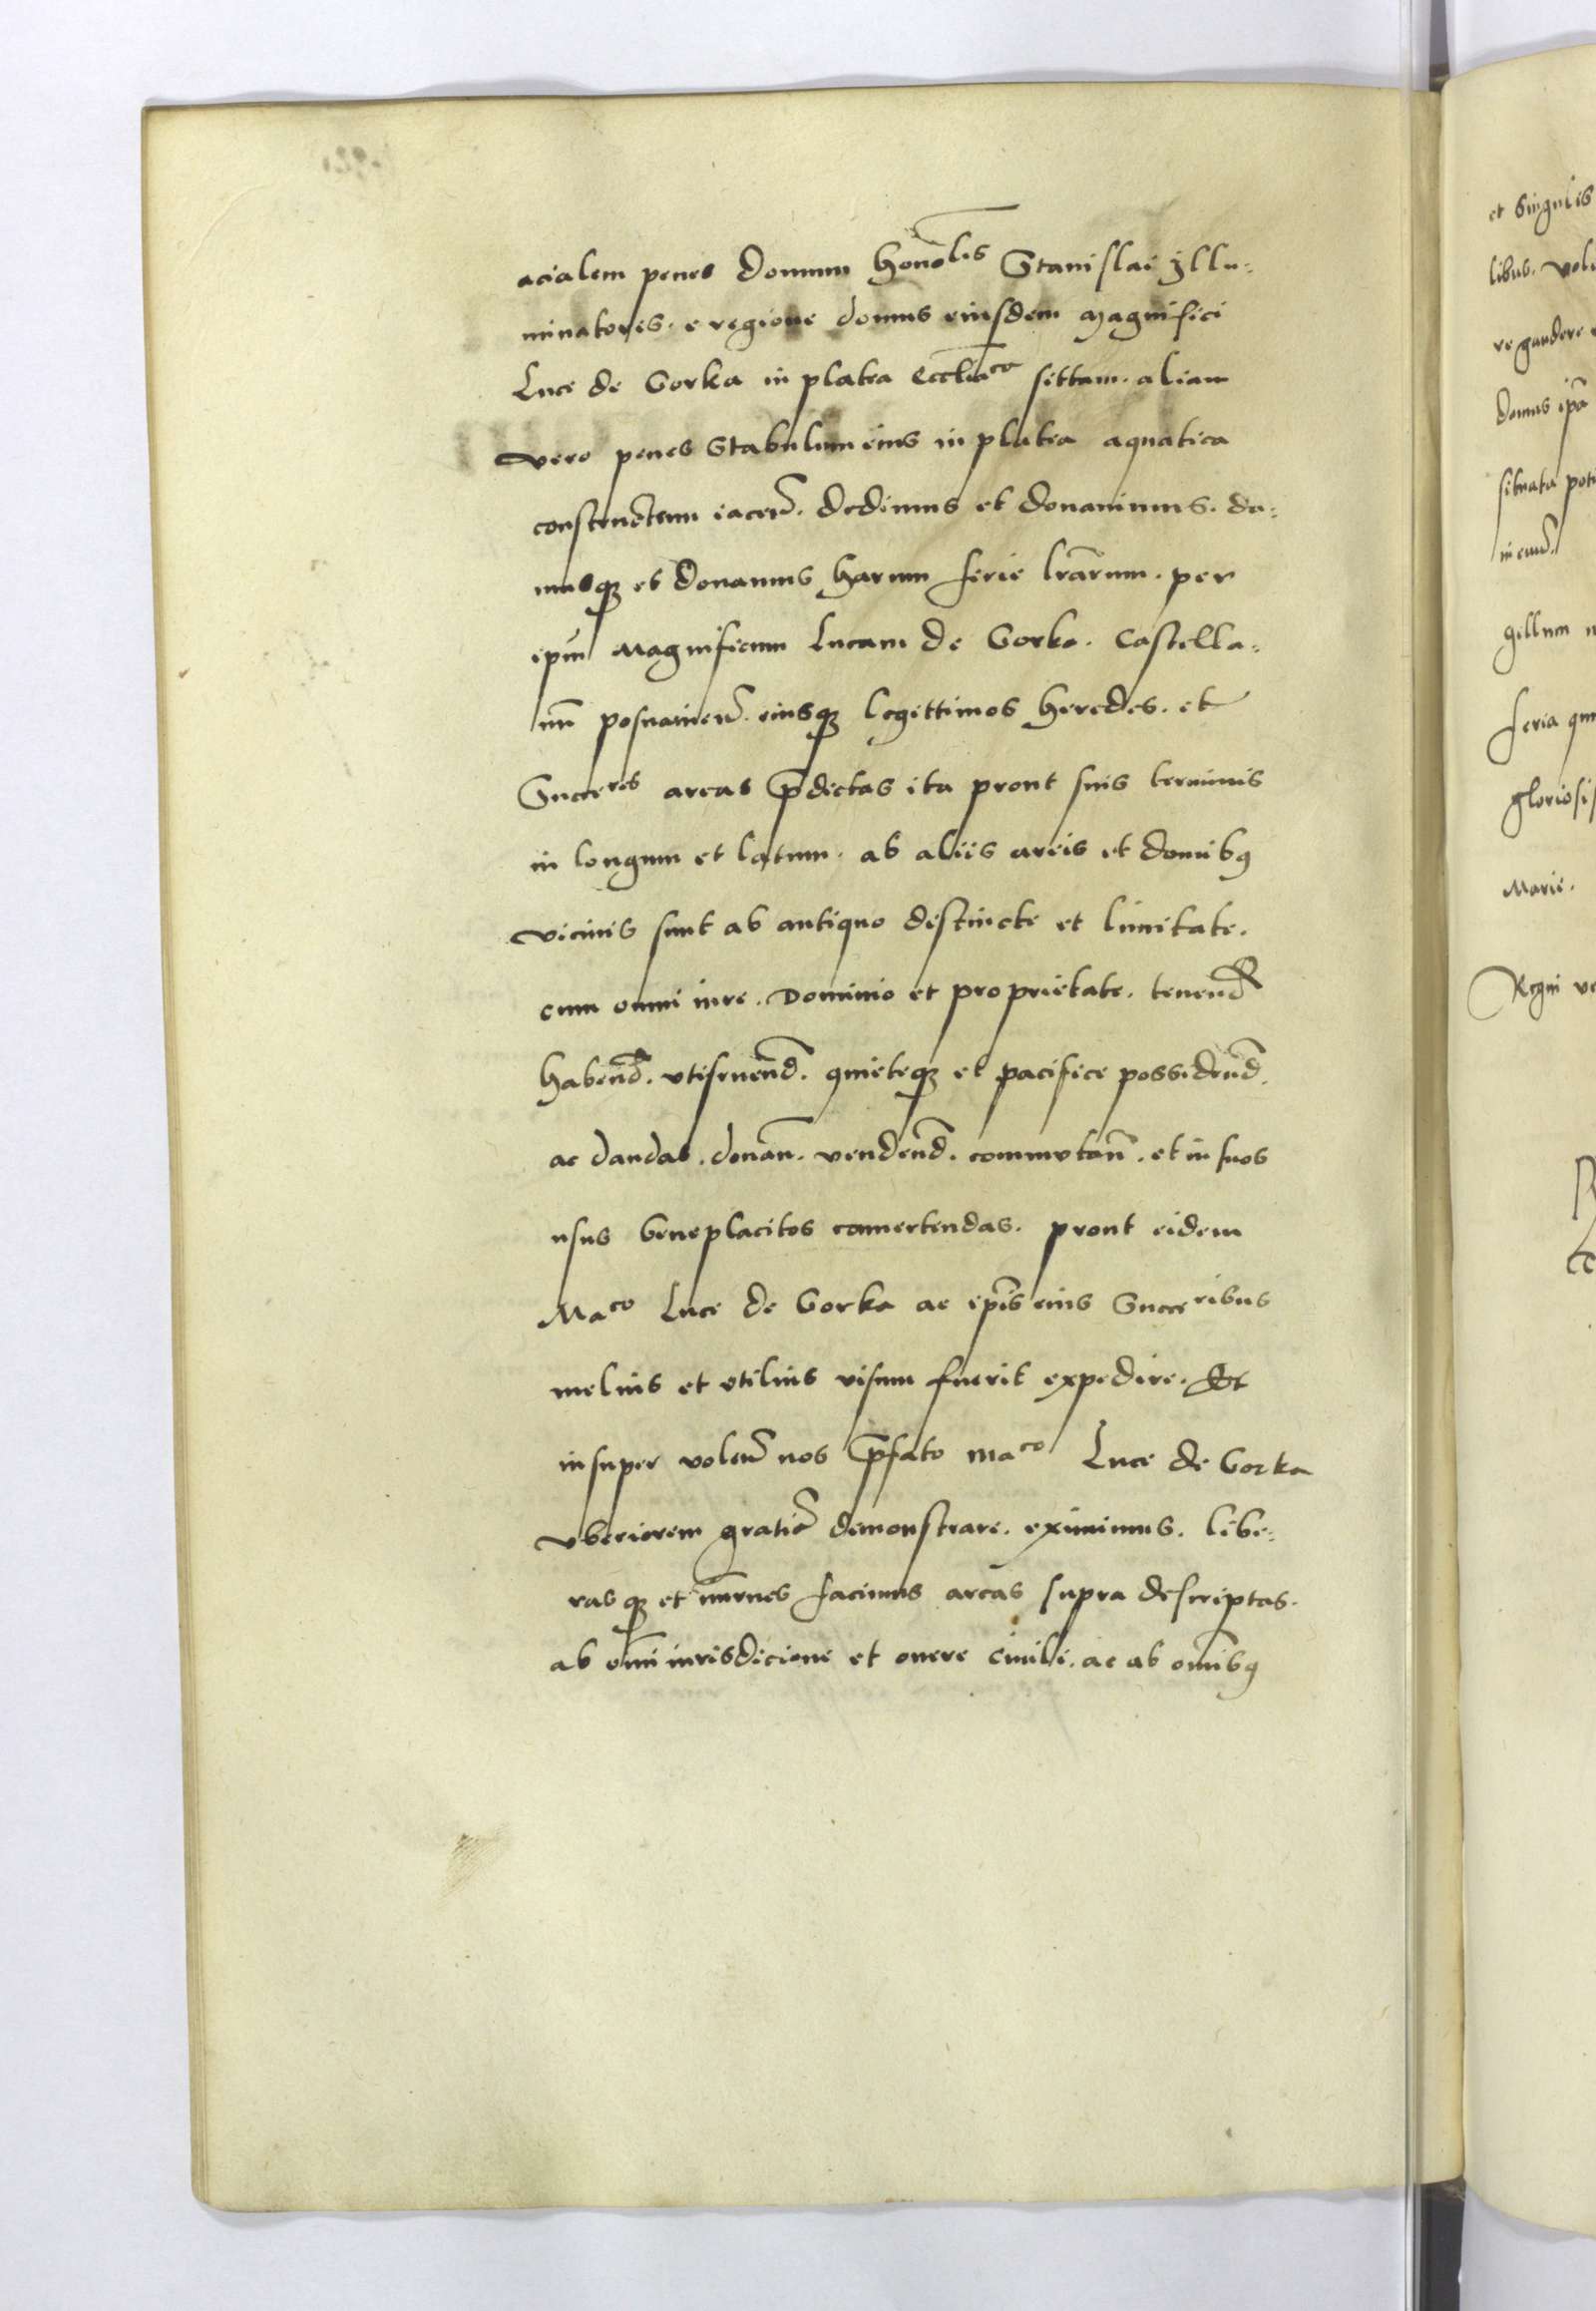 acialem penes domum honolis Stanislai Illu-
minatoris. e regione domus eiusdem Magnifici
Luce de Gorka in platea Eccliaco sittam. aliam
vero penes Stabulum eius in platea aquatica
constructam iacen. dedimus et donauimus. da-
musq et donamus harum serie lrarum. per
ipm Magnificum Lucam de Gorka. Castella-
nu posnanien. eiusq legittimos heredes. et
Succeres areas pdictas ita prout suis terminis
in longum et latum. ab aliis areis et domibq
vicinis sunt ab antiquo distincte et limitate.
cum omni iure. Dominio et proprietate. tenend
habend. vtifruend. quieteq et pacifice possidend.
ac dandas. donan. vendend. commvtan. et in suos
usus beneplacitos conuertendas. prout eidem
Maco Luce de Gorka ac ipis eius Succeribus
melius et vtilius visum fuerit expedire. Et
insuper volen nos pfato maco Luce de Gorka
vberiorem gratia demonstrare. eximimus. libe-
rasq et facimus areas supra descriptas.
ab omi iurisdicione et onere ciuili. ac ab omibq
et singulis
libus.
re gaudere
domus ipa
situata
in euu.
gillum
feria
gloriosis
Marie.
Regni